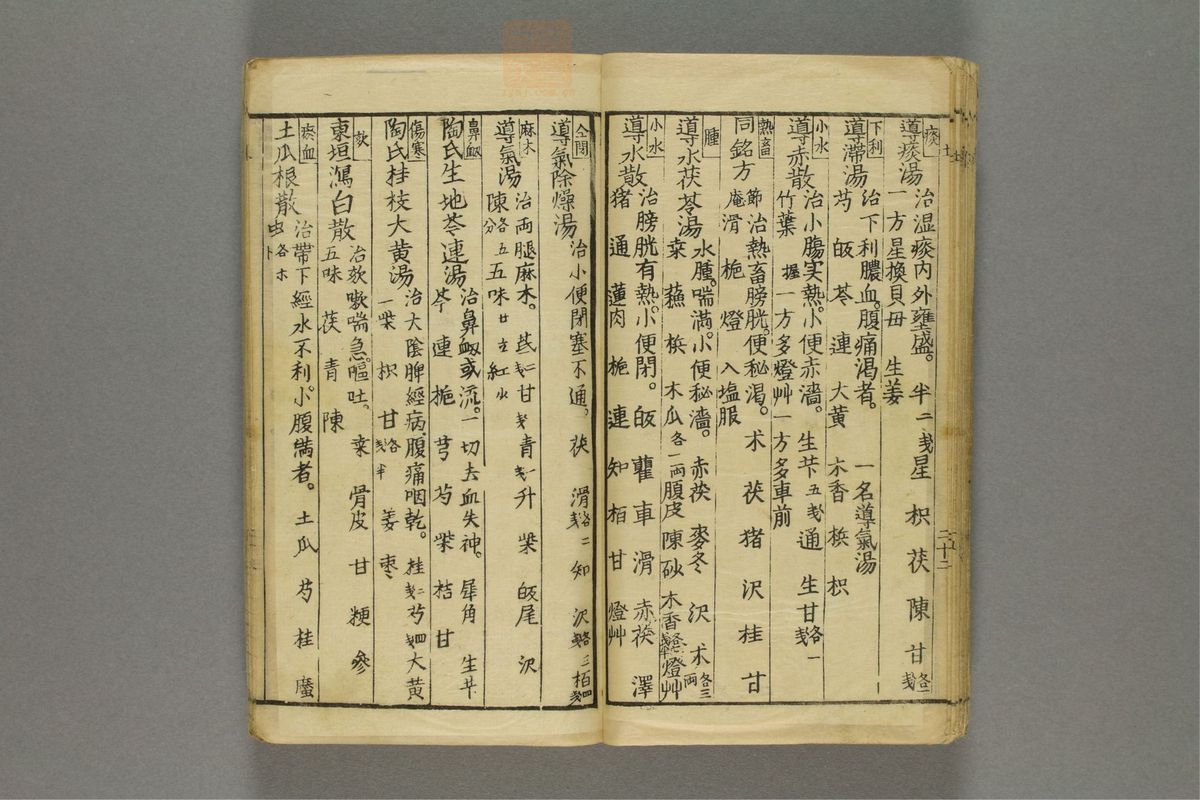 痰
導痰湯
治湿痰内外壅盛。半二戔星枳茯陳甘各一戔
一方星換貝母 生姜
下利
導滯湯
治下利膿血。腹痛渇者。 一名導氣湯
芍 皈 苓 連 大黄 木香 梹 枳
小水
導赤散
治小膓実熱。小便赤濇。生芐五戔通 生甘各一戔
竹葉 握 一方多燈艸一方多車前
熱畜
同銘方
節庵 治熱畜膀胱。便秘渇。 术 茯 猪 沢 桂 甘
滑 梔 燈 入塩服
腫
導水茯苓湯
水腫。喘満。小便秘濇。 赤茯 麥冬 沢 术各三両
桒 蘓 梹 木瓜各一両腹皮 陳 砂 木香 燈艸
小水
導水散
治膀胱有熱。小便閉。 皈 藿 車 滑 赤茯 澤
猪 通 蓮肉 梔 連 知 栢 甘 燈艸
仝閉
導氣除燥湯
治小便閉塞不通。 茯 滑各二戔 知 沢各三戔栢四戔
麻木
導氣湯
治両腿麻木。 芪二戔甘戔青一戔升 柴 皈尾 沢
陳各五分五味廿立紅水
鼻衂
陶氏生地芩連湯
治鼻衂或流。一切去血失神。 犀角 生芐
芩 連 梔 芎 芍 柴 桔 甘
傷寒
陶氏桂枝大黄湯
治大陰脾經病。腹痛咽乾。 桂二戔芍四戔大黄
一柴 枳 甘各戔半 姜 棗
欬
東垣瀉白散
治欬嗽喘急。嘔吐。 桒 骨皮 甘 粳 參
五味 茯 青 陳
瘀血
土瓜根散
治帶下經水不利。小腹満者。 土瓜 芍 桂 䗪
虫各木卜
二十二